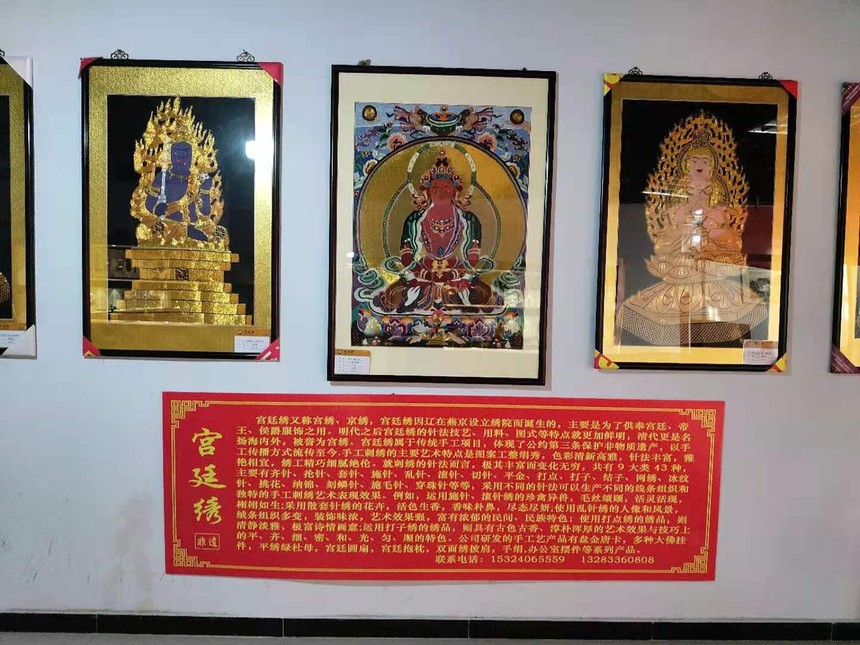 宫廷绣
非遗
宫廷绣又称宫绣、京绣，宫廷绣因辽在燕京设立绣院而诞生的，主要是为了供奉宫廷、帝
王、侯爵服饰之用。明代之后宫廷绣的针法技艺、用料、图式等特点就更加鲜明，清代更是名
扬海内外，被誉为宫绣。宫廷绣属于传统手工项目，体现了公约第三条保护非物质遗产，以手
工传播方式流传至今.手工刺绣的主要艺术特点是图案工整绢秀，色彩清新高雅，针法丰富，雅
艳相宜，绣工精巧细腻绝伦。就刺绣的针法而言，极其丰富而变化无穷，共有9大类43种，
主要有齐针、抢针、套针、施针、乱针、滚针、切针、平金、打点、打子、结子、网绣、冰纹
针、挑花、纳锦、刻鳞针、施毛针、穿珠针等等，采用不同的针法可以生产不同的线条组织和
独特的手工刺绣艺术表现效果。例如，运用施针、滚针绣的珍禽异兽，毛丝颂顺，活灵活现，
栩栩如生;采用散套针绣的花卉，活色生香，香味扑鼻，尽态尽妍;使用乱针绣的人像和风景，
绒条组织多变，装饰味浓，艺术效果强，富有浓郁的民间、民族特色；使用打点绣的绣品，则
清静淡雅，极富诗情画意;运用打子绣的绣品，则具有古色古香、淳朴浑厚的艺术效果与技巧上
的平、齐、细、密、和、光、匀、顺的特色。公司研发的手工艺产品有盘金唐卡，多种大佛挂
件，平绣绿杜母，宫廷圆扇，宫廷抱枕，双面绣披肩，手绢,办公室摆件等系列产品。
联系电话：15324065559 13283360808